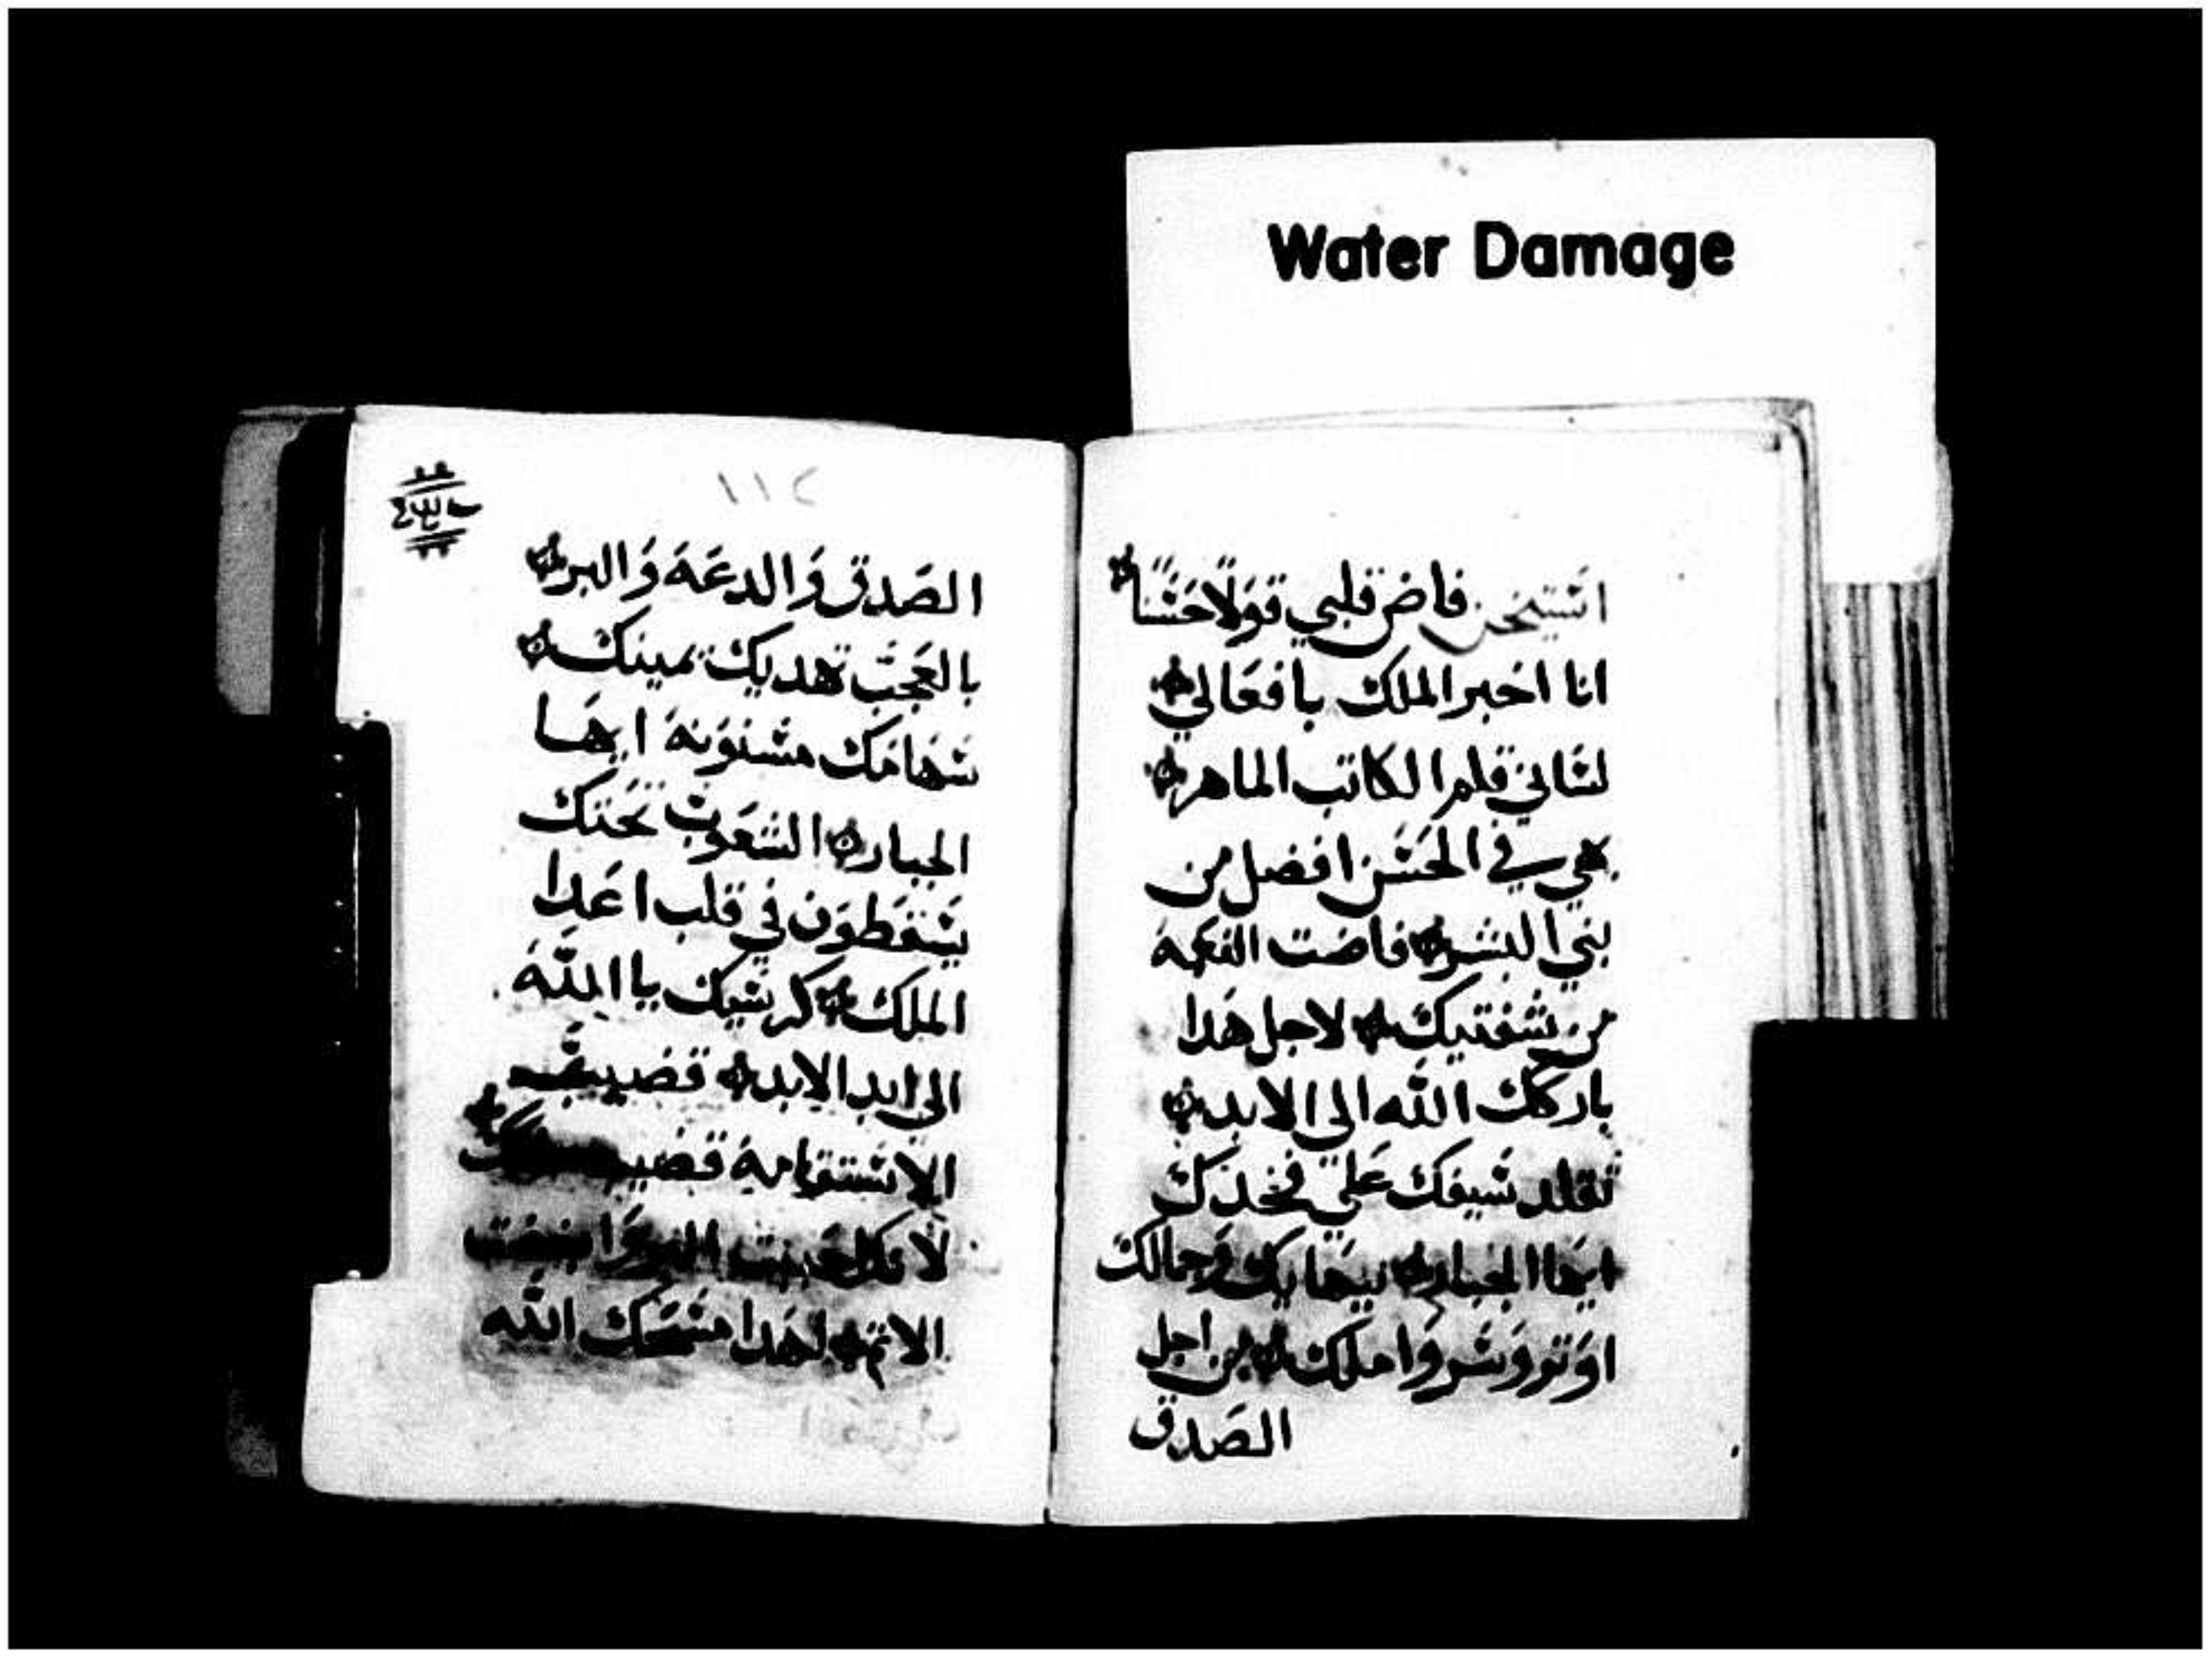 Water Damage
انستيخن فاض قلبي قولًا حسنًا
انا اخبر الملك بافعالي
لساني قلم الكاتب الماهر
بهي في الحسن افضل من
بني البشر فاضت النعمة
من شفتيك لاجل هدا
باركك الله الى الابد
تقلد سيفك علي فخدك
ايها الجبار ببهايك وجمالك
اوتر وسر واملك من اجل
الصدق
١١٢
الصَدق وَالدعَة وَالبر
بالعَجَب تهديك يمينك
سهامك مسنونة ايها
الجبار الشعوب تحتك
يسقطون في قلب اعدا
الملك كرسيك يا الله
الى ابد الابد قضيب
الاستقامة قضيب
لانك احببت البر وابغضت
الاتم لهدا مسحك الله